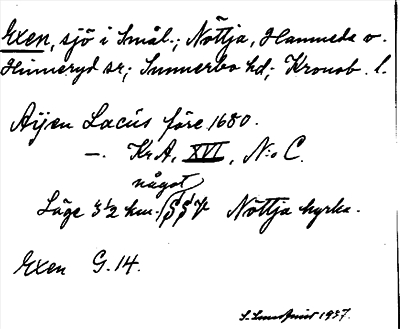 Exen, sjö i Smål.; Nöttja, Hamneda o.
Hinneryd sr; Sunnerbo hd; Kronob. l.
Aijen Lacus före 1680.
—. KrA, XVI, N:o C.
något
Läge 3½ km. SSV Nöttja kyrka.
Exen G. 14.
1937.